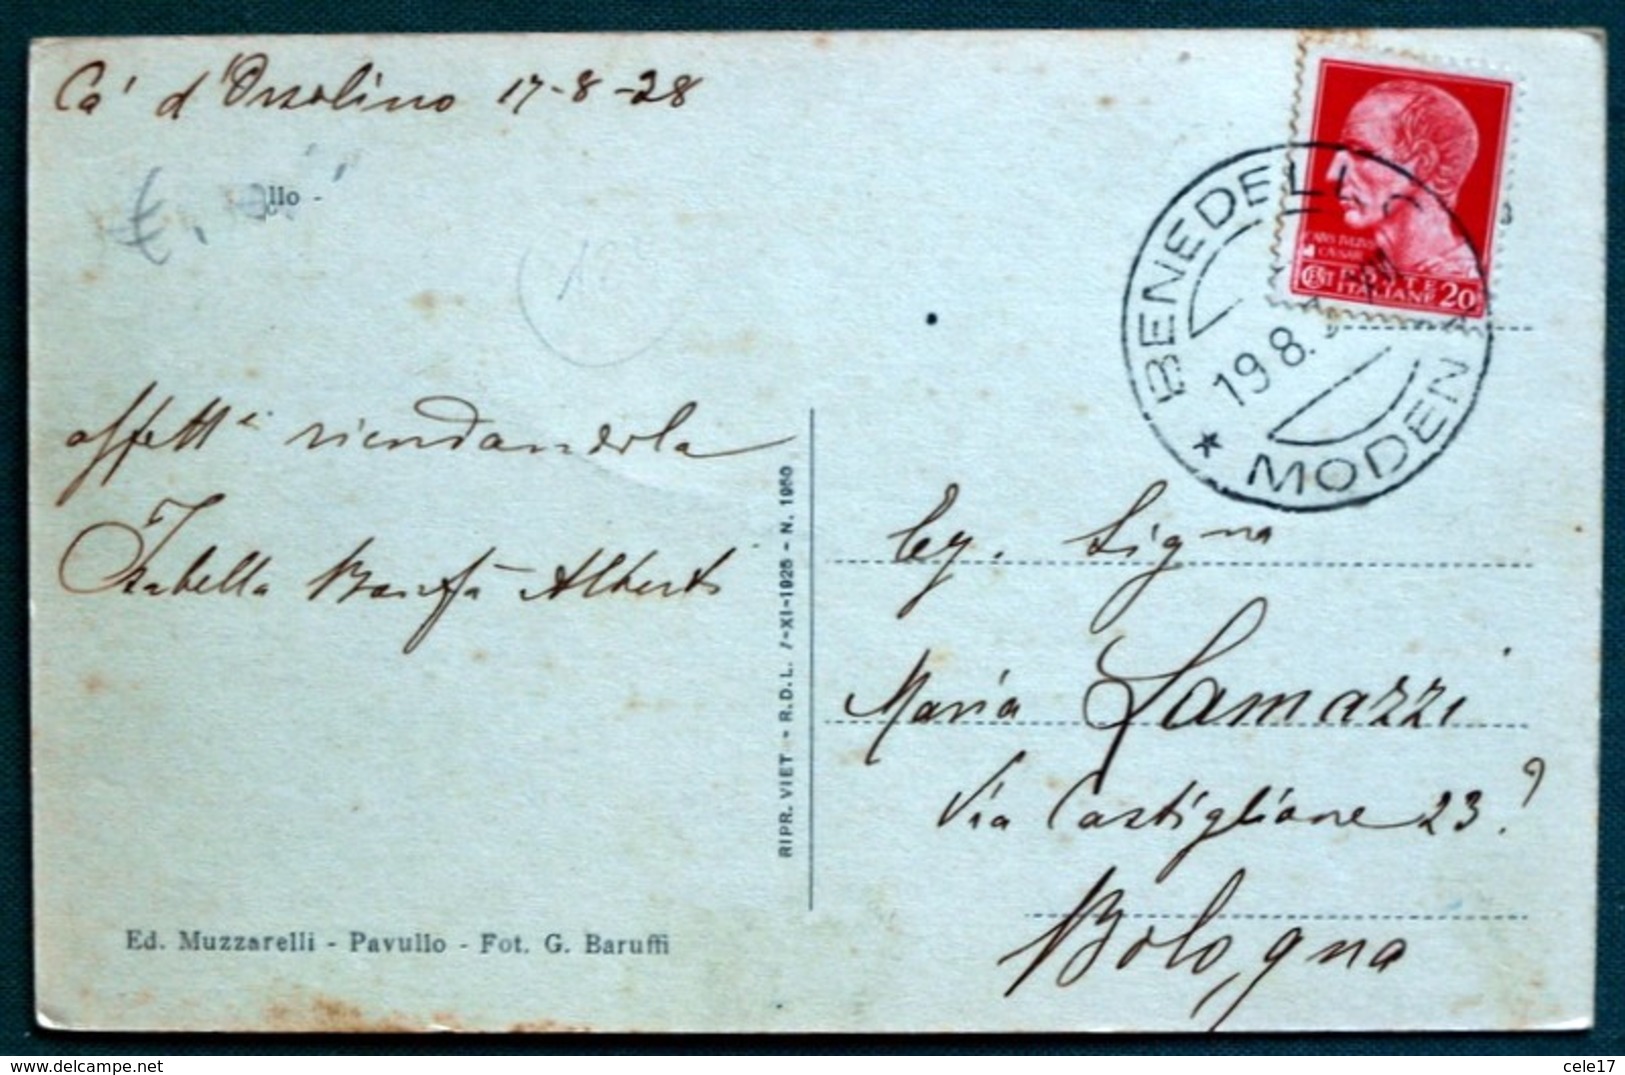 Ca' d'Orsolino 17-8-28
llo -
affett.i ricordandola
Isabella Alberti
RIPR. VIET - R.D.L. /-XI-1925 - N. 1950
Ed. Muzzarelli - Pavullo - Fot. G. Baruffi
POSTE
ITALIANE 20
BENEDELLO
19.8.
* MODEN
Eg. Sig.na
Maria Lamazzi
Via Castiglione 23?
Bologna
https://www.delcampe.net
cele17